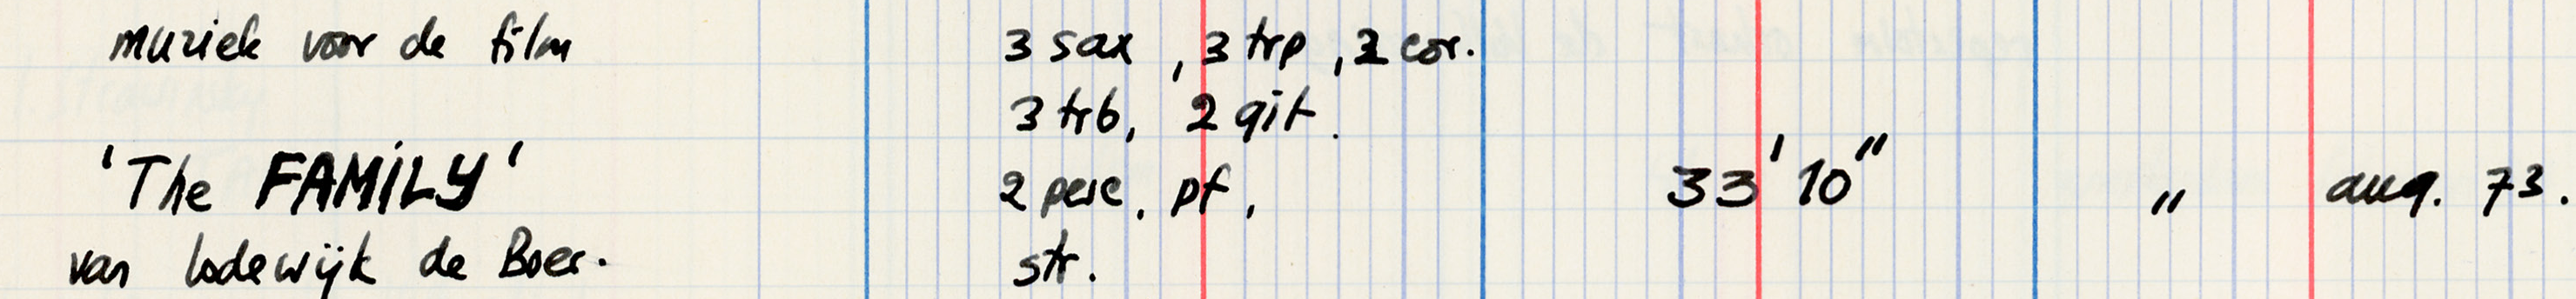 muziek voor de film 3 sax, 3 trp, 2 cor.
3 trb, 2 git.
'The FAMiLY' 2 perc, pf, 33' 10" " aug. 73.
van Lodewijk de Boer. str.